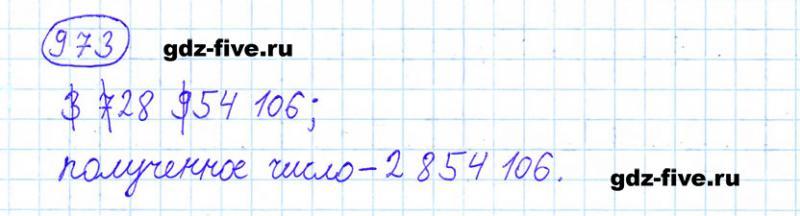 973
gdz-five.ru
3 728 954 106;
полученное число - 2 854 106.
gdz-five.ru